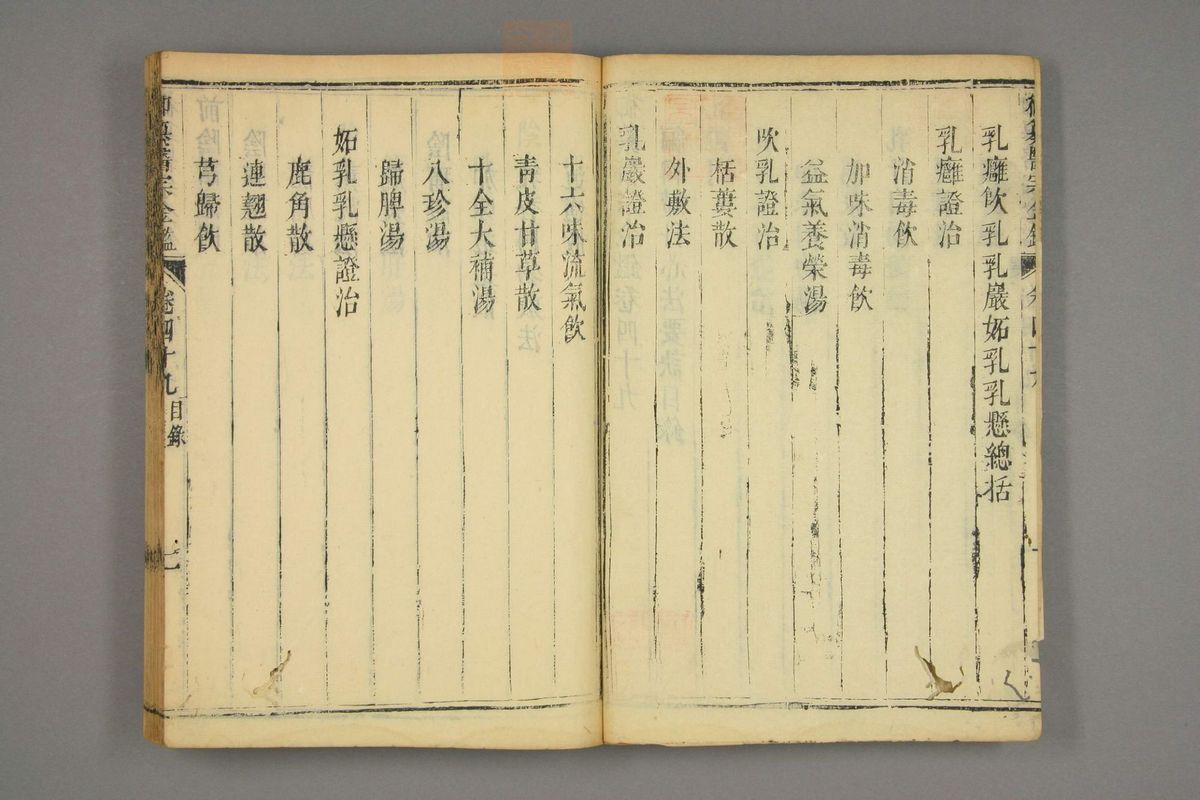 乳癰飲乳乳巖妬乳乳懸總括
乳癰證治
消毒飲
加味消毒飲
益氣養榮湯
吹乳證治
栝蔞散
外敷法
乳巖證治
十六味流氣飲
青皮甘草散
十全大補湯
八珍湯
歸脾湯
妬乳乳懸證治
鹿角散
連翹散
芎歸飲
御纂醫宗金鑑
卷四十九目錄